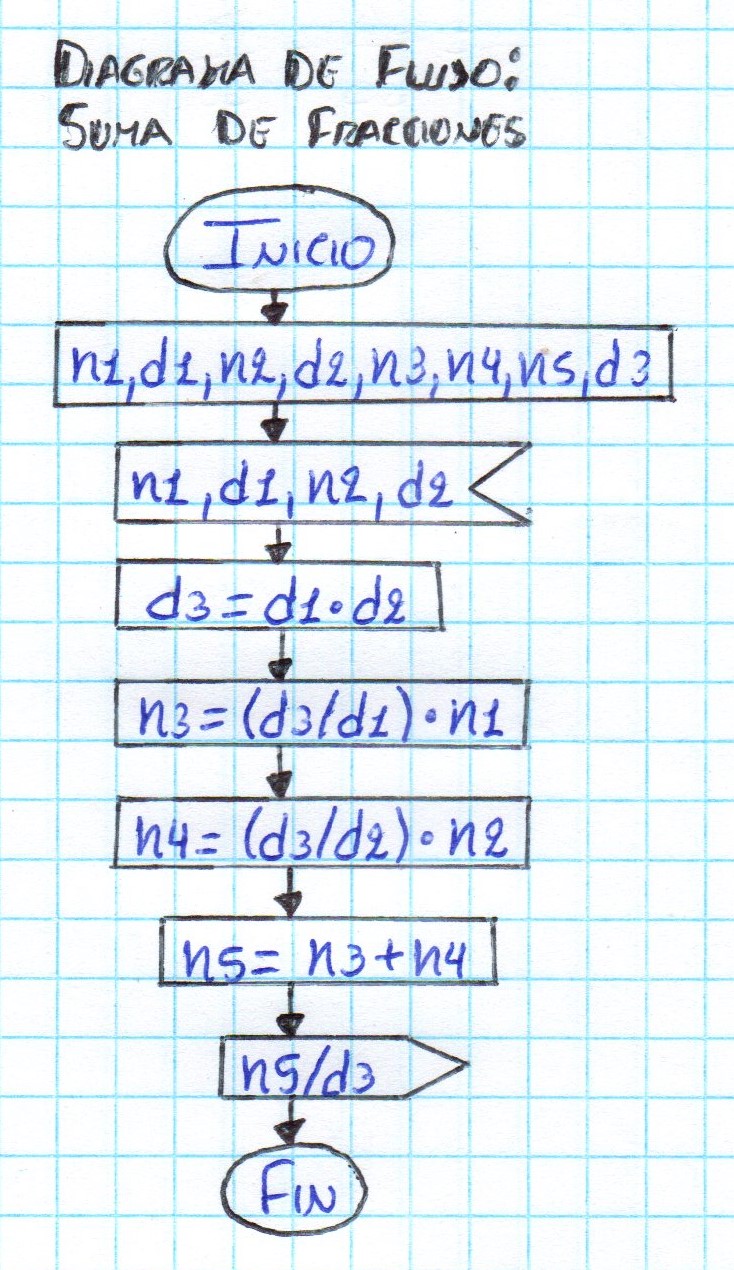 DIAGRAMA DE FLUJO:
SUMA DE FRACCIONES
INICIO
n1,d1,n2,d2,n3,n4,n5,d3
n1,d1,n2,d2
d3=d1·d2
n3=(d3/d1)·n1
n4=(d3/d2)·n2
n5=n3+n4
n5/d3
FIN